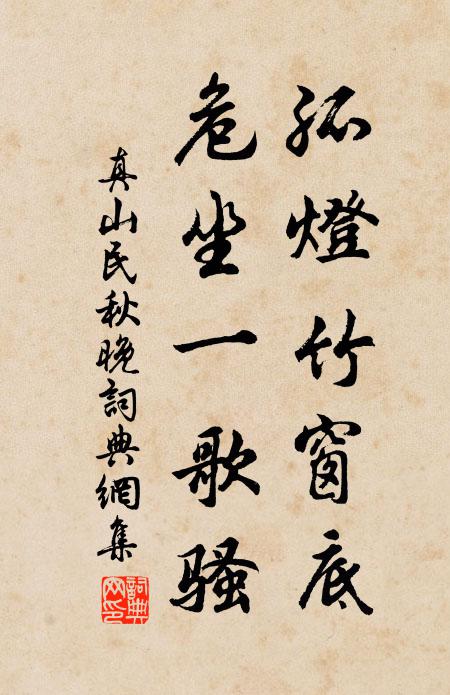 孤燈竹窗底
危坐一歌騷
真山民秋晚詞典網集
詞典網印